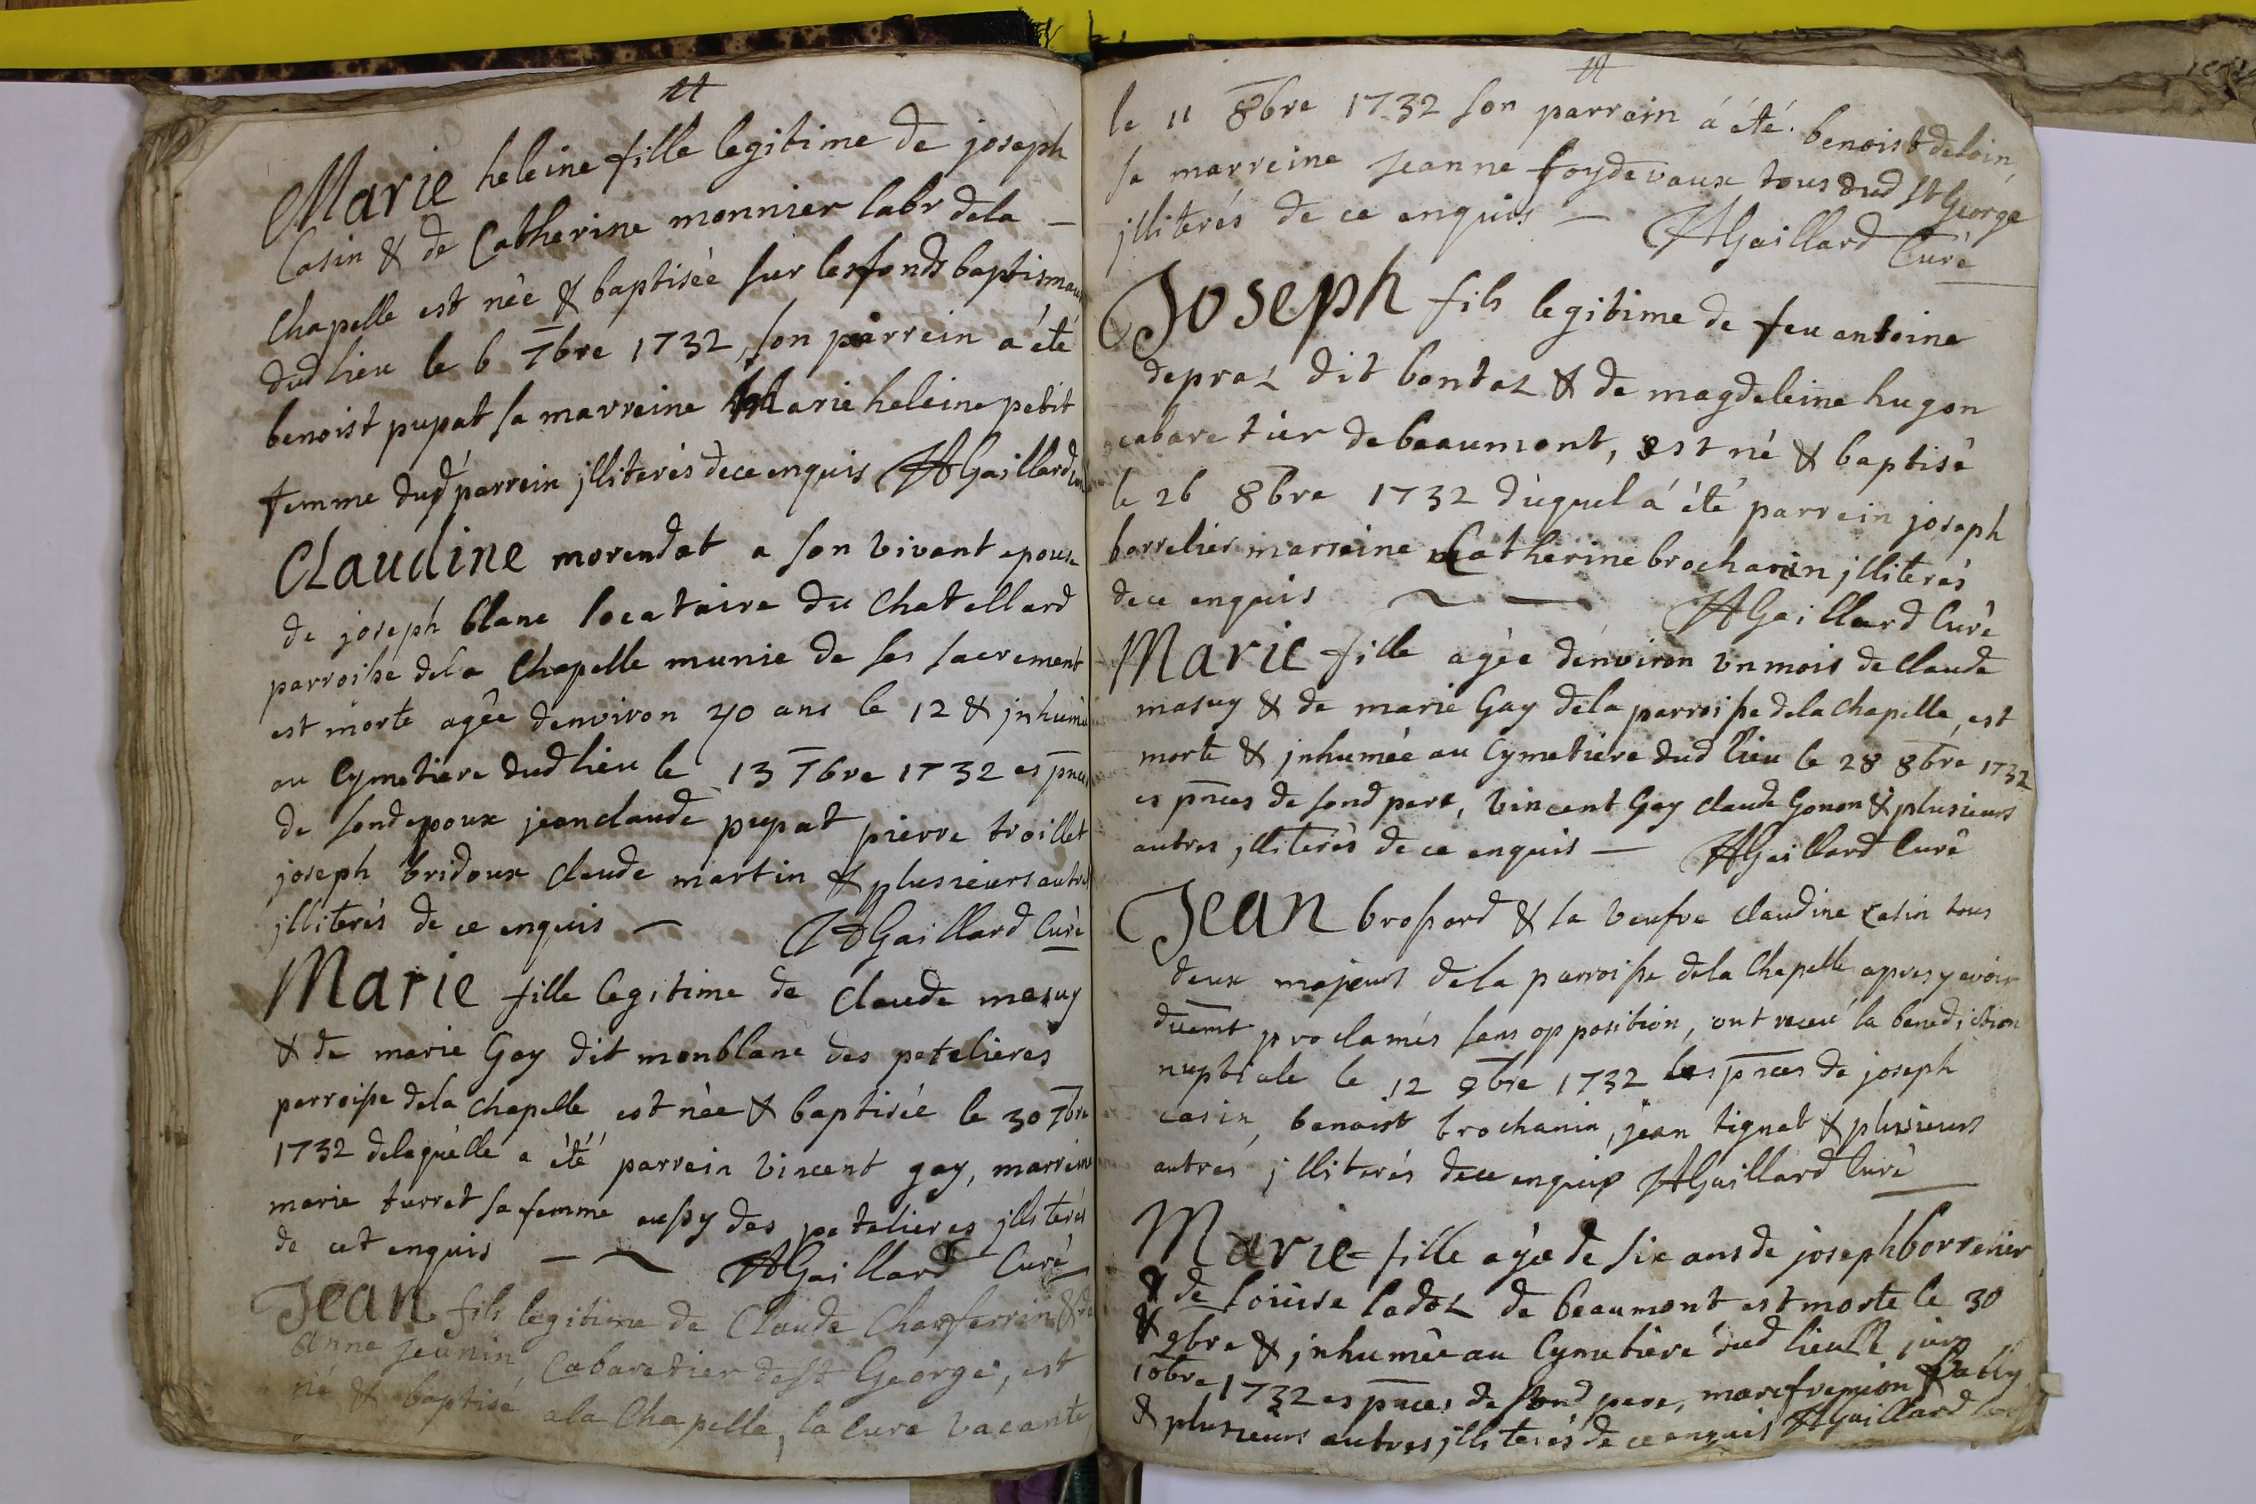 Marie heleine fille legitime de joseph
Casin & de Catherine monnier labr dela
Chapelle est née & baptisée sur les fonds baptismaux
dud lieu le 6 7bre 1732, son parrein a été
benoist pupat sa marreine Marie heleine petit
femme dud parrein jlliterés de ce enquis Gaillard
Claudine morendat a son vivant epouse
de joseph blanc locataire du Chatellard
parroisse dela Chapelle munie de ses sacrement
est morte agée denviron 40 ans le 12 & jnhumée
au Cymetiere dud lieu le 13 7bre 1732 es pnces
de sond epoux jean claude pupat pierre troillet
joseph bridoux claude martin & plusieurs autres
jlliterés de ce enquis Gaillard Curé
Marie fille legitime de Claude masuy
& de marie Gay dit monblanc des petelieres
parroisse dela Chapelle est née & baptisée le 30 7bre
1732 delaquelle a été parrein vincent gay, marreine
marie turret sa femme aussy des petelieres jlliterés
de cet enquis Gaillard Curé
Jean fils legitime de Claude Charferrin & de
Anne jeunin, Cabaretier de St George, est
né & baptisé a la Chapelle, la Cure vacante
le 11 8bre 1732 son parrein á été benoist deloin,
sa marreine jeanne foydevaux tous dud St George
jlliterés de ce enquis Gaillard Curé
Joseph fils legitime de feu antoine
depraz dit bontaz & de magdeleine hugon
cabaretier de beaumont, est né & baptisé
le 26 8bre 1732 duquel á été parrein joseph
borrelier marreine Catherine brochanin jlliterés
de ce enquis Gaillard Curé
Marie fille agée denviron un mois de Claude
masuy & de marie Gay dela parroisse dela chapelle, est
morte & jnhumée au Cymetiere dud lieu le 28 8bre 1732
es pnces de sond pere, vincent Gay claude Gonon & plusieurs
autres jlliterés de ce enquis Gaillard Curé
Jean brossard & la veufve claudine casin tous
deux majeurs dela parroisse dela Chapelle apres y avoir
duemt proclamés sans opposition, ont receu la benediction
nuptiale le 12 9bre 1732 es pnces de joseph
casin, benoist brochanin, jean tignat & plusieurs
autres jlliterés de ce enquis Gaillard Curé
Marie fille agée de six ans de joseph borrelier
& de loüise ladoz de beaumont est morte le 30
9bre & jnhumée au Cymetiere dud lieu le
10bre 1732 es pnces de sond pere, marc fremion
& plusieurs autres jlliterés de ce enquis Gaillard